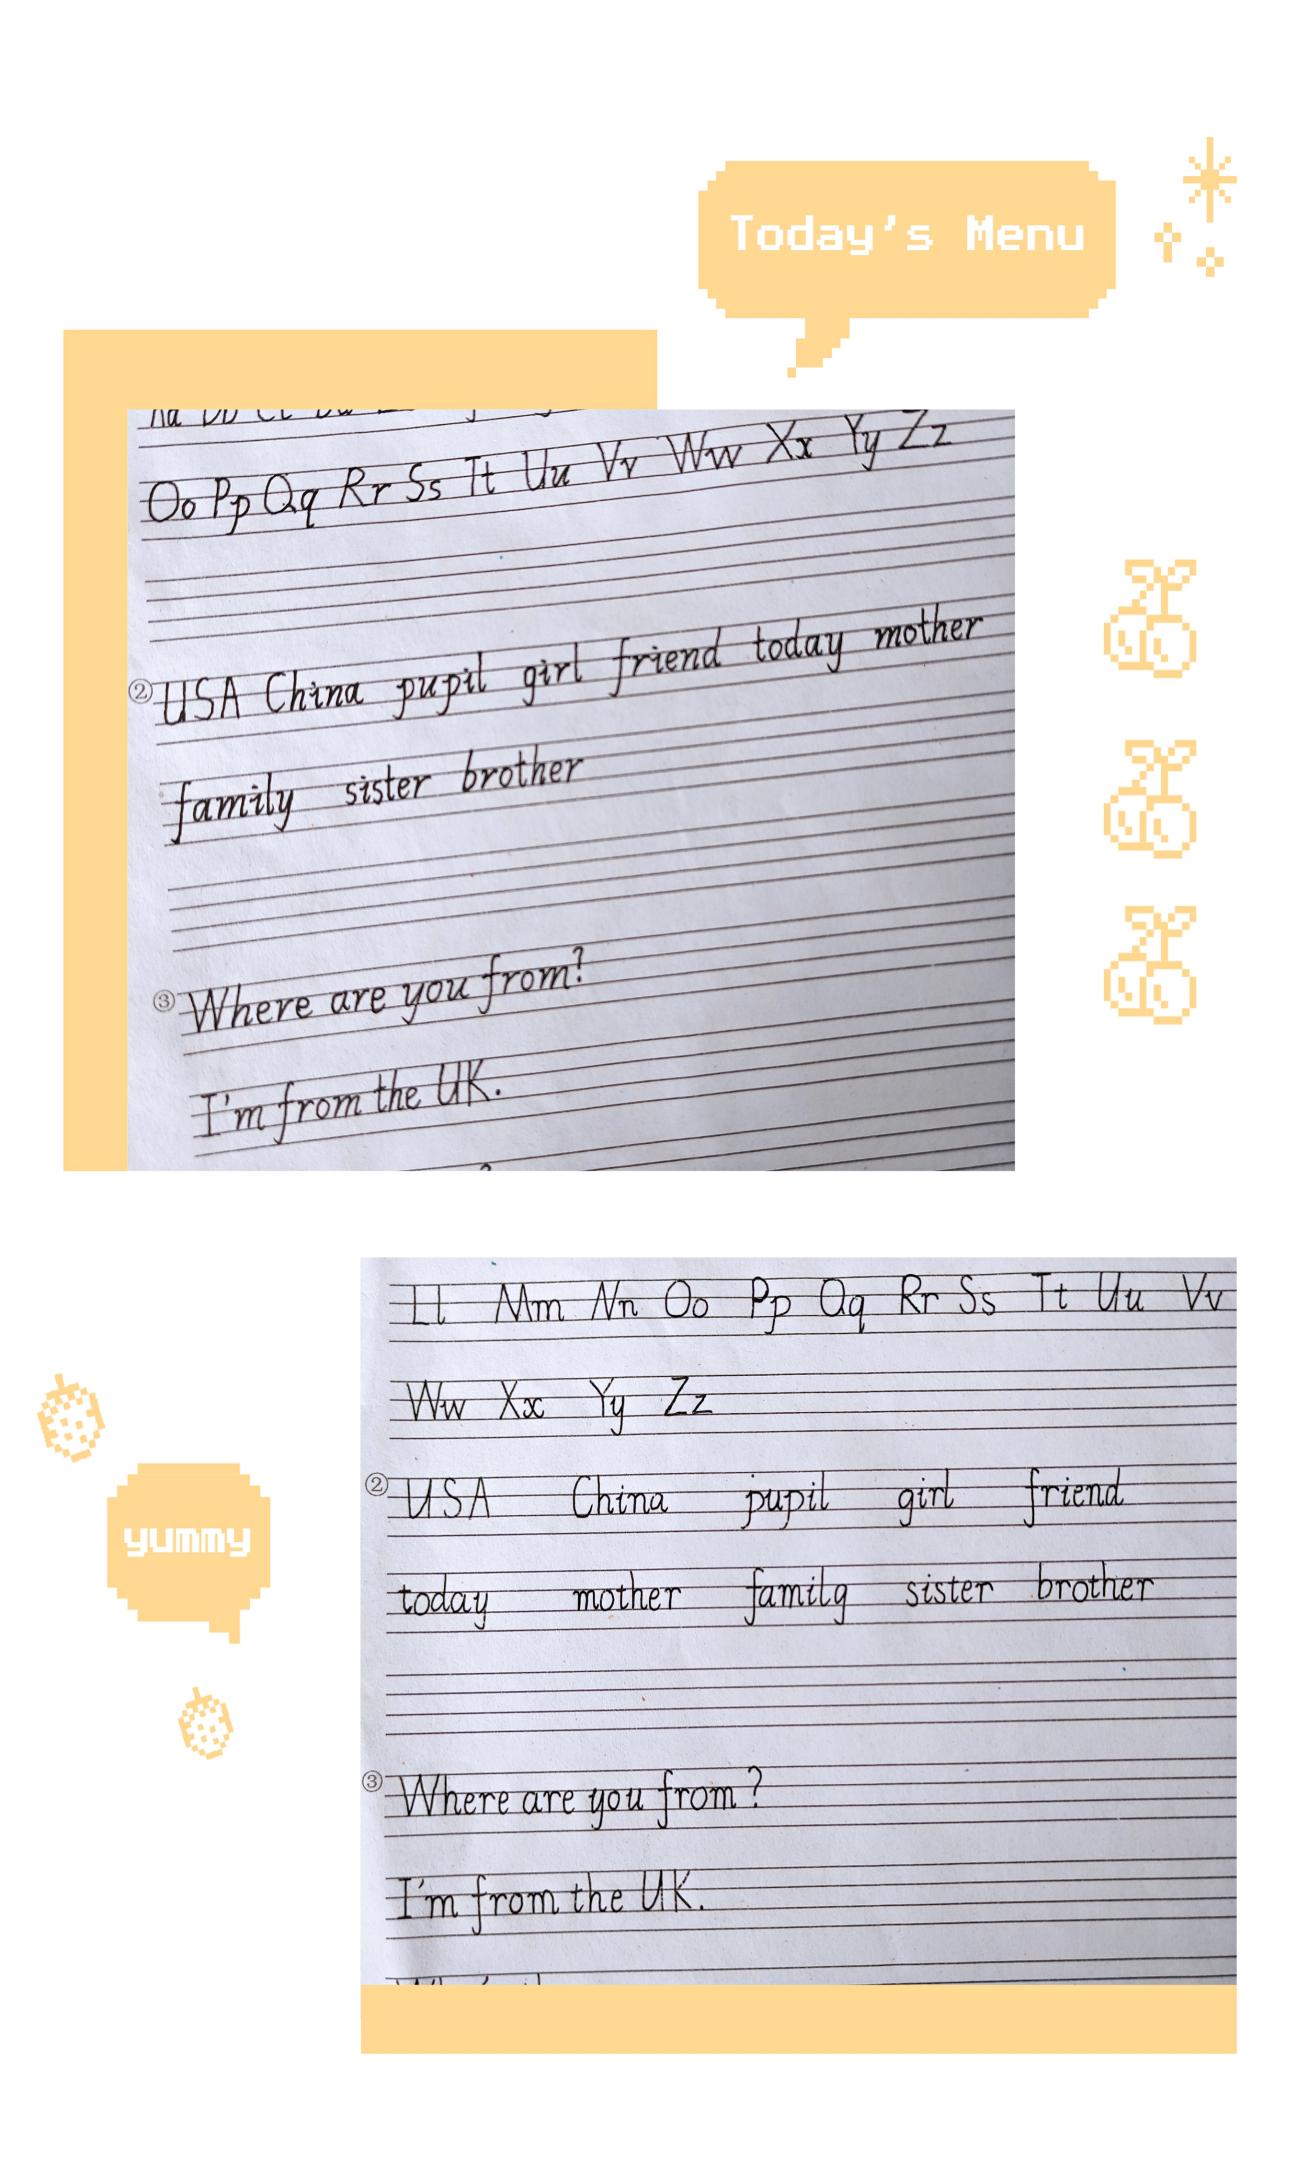 Today's Menu
Oo Pp Qq Rr Ss Tt Uu Vv Ww Xx Yy Zz
② USA China pupil girl friend today mother
family sister brother
③ Where are you from?
I'm from the UK.
Ll Mm Nn Oo Pp Qq Rr Ss Tt Uu Vv
Ww Xx Yy Zz
② USA China pupil girl friend
today mother family sister brother
yummy
③ Where are you from?
I'm from the UK.